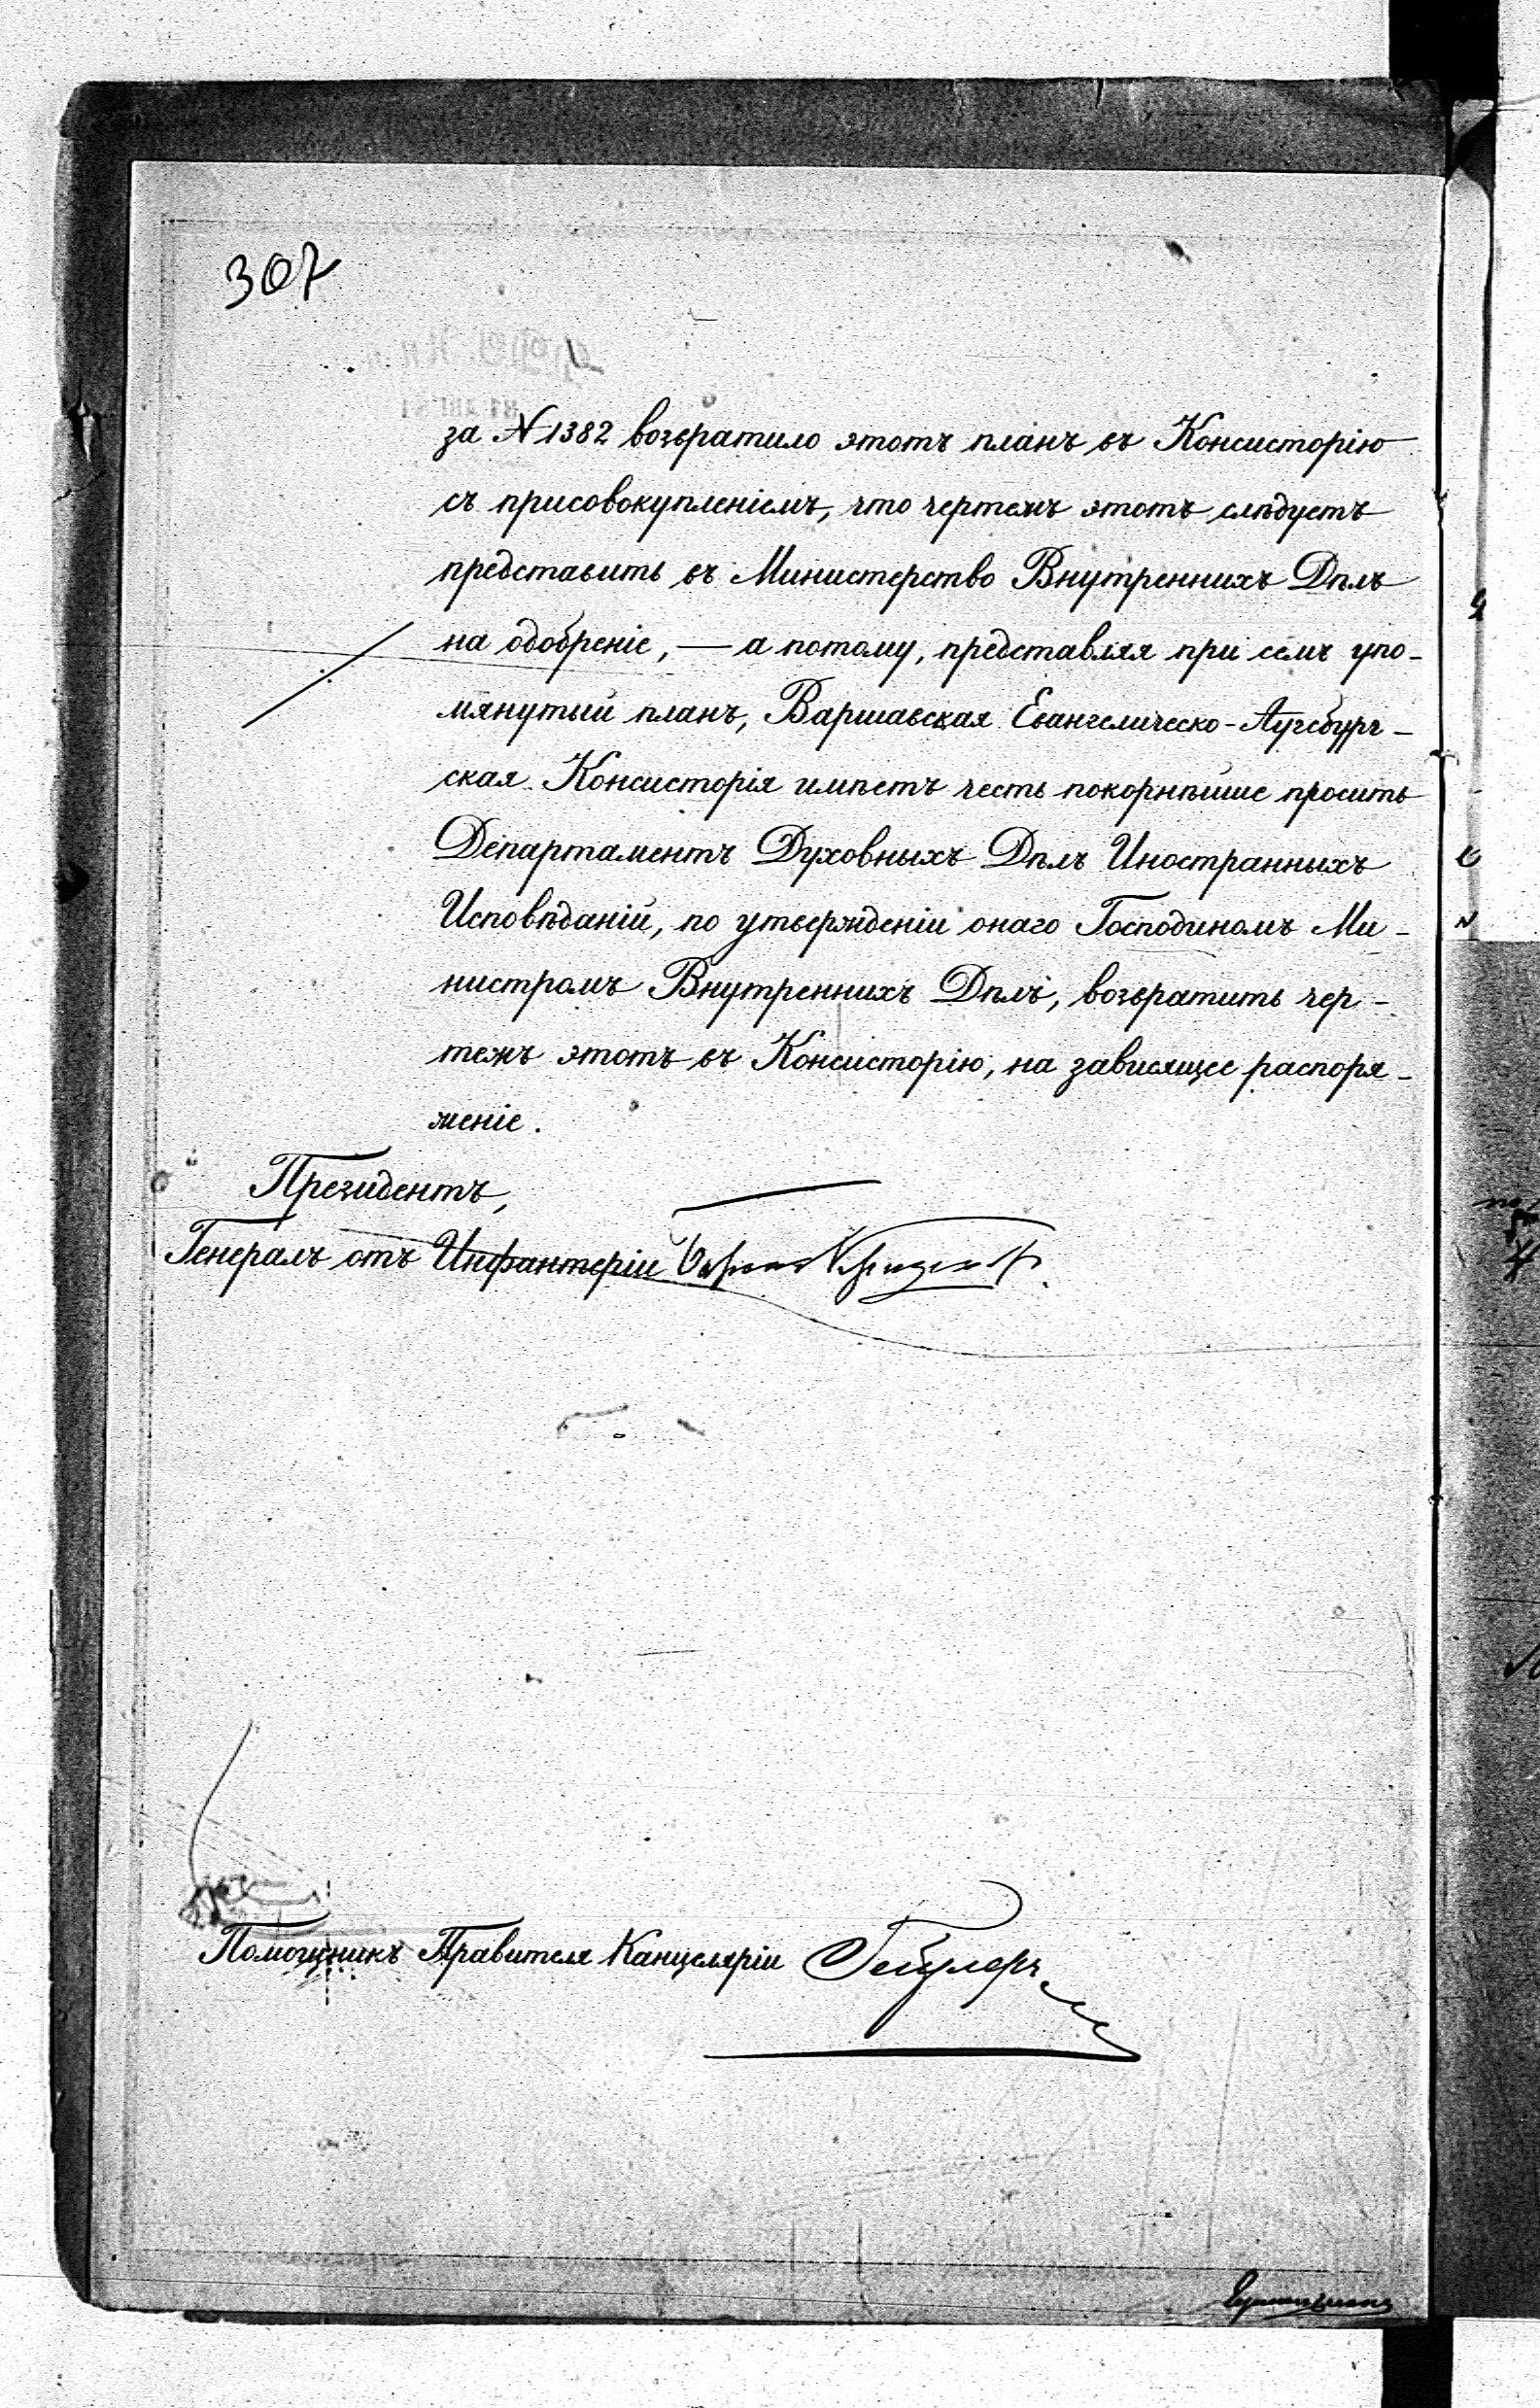 307
за N 1382 возвратило этотъ планъ въ Консисторію
съ присовокупленіемъ, что чертежъ этотъ слѣдуетъ
представить въ Министерство Внутреннихъ Дѣлъ
на одобреніе, — а потому, представляя при семъ упо-
мянутый планъ, Варшавская Евангелическо-Аугсбург-
ская Консисторія имѣетъ честь покорнѣйше просить
Департаментъ Духовныхъ Дѣлъ Иностранныхъ
Исповѣданій, по утвержденіи онаго Господиномъ Ми-
нистромъ Внутреннихъ Дѣлъ, возвратить чер-
тежъ этотъ въ Консисторію, на зависящее распоря-
женіе.
Президентъ,
Генералъ отъ Инфантеріи Баронъ
Помощникъ Правителя Канцеляріи